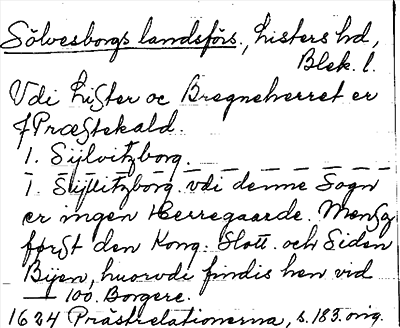 Sölvesborgs landsförs., Listers hd,
Blek. l.
Vdi Lister oc Bregneherret er
7 Præstekald.
1. Sijlvitzborg.
1. Sijllitzborg. vdi denne Sogn
er ingen Herregaarde. Mens
førſt den Kong. Slott. och Siden
Bijen, huorvdi findis hen vid
100. Borgere.
1624 Prästrelationerna, s. 183. orig.